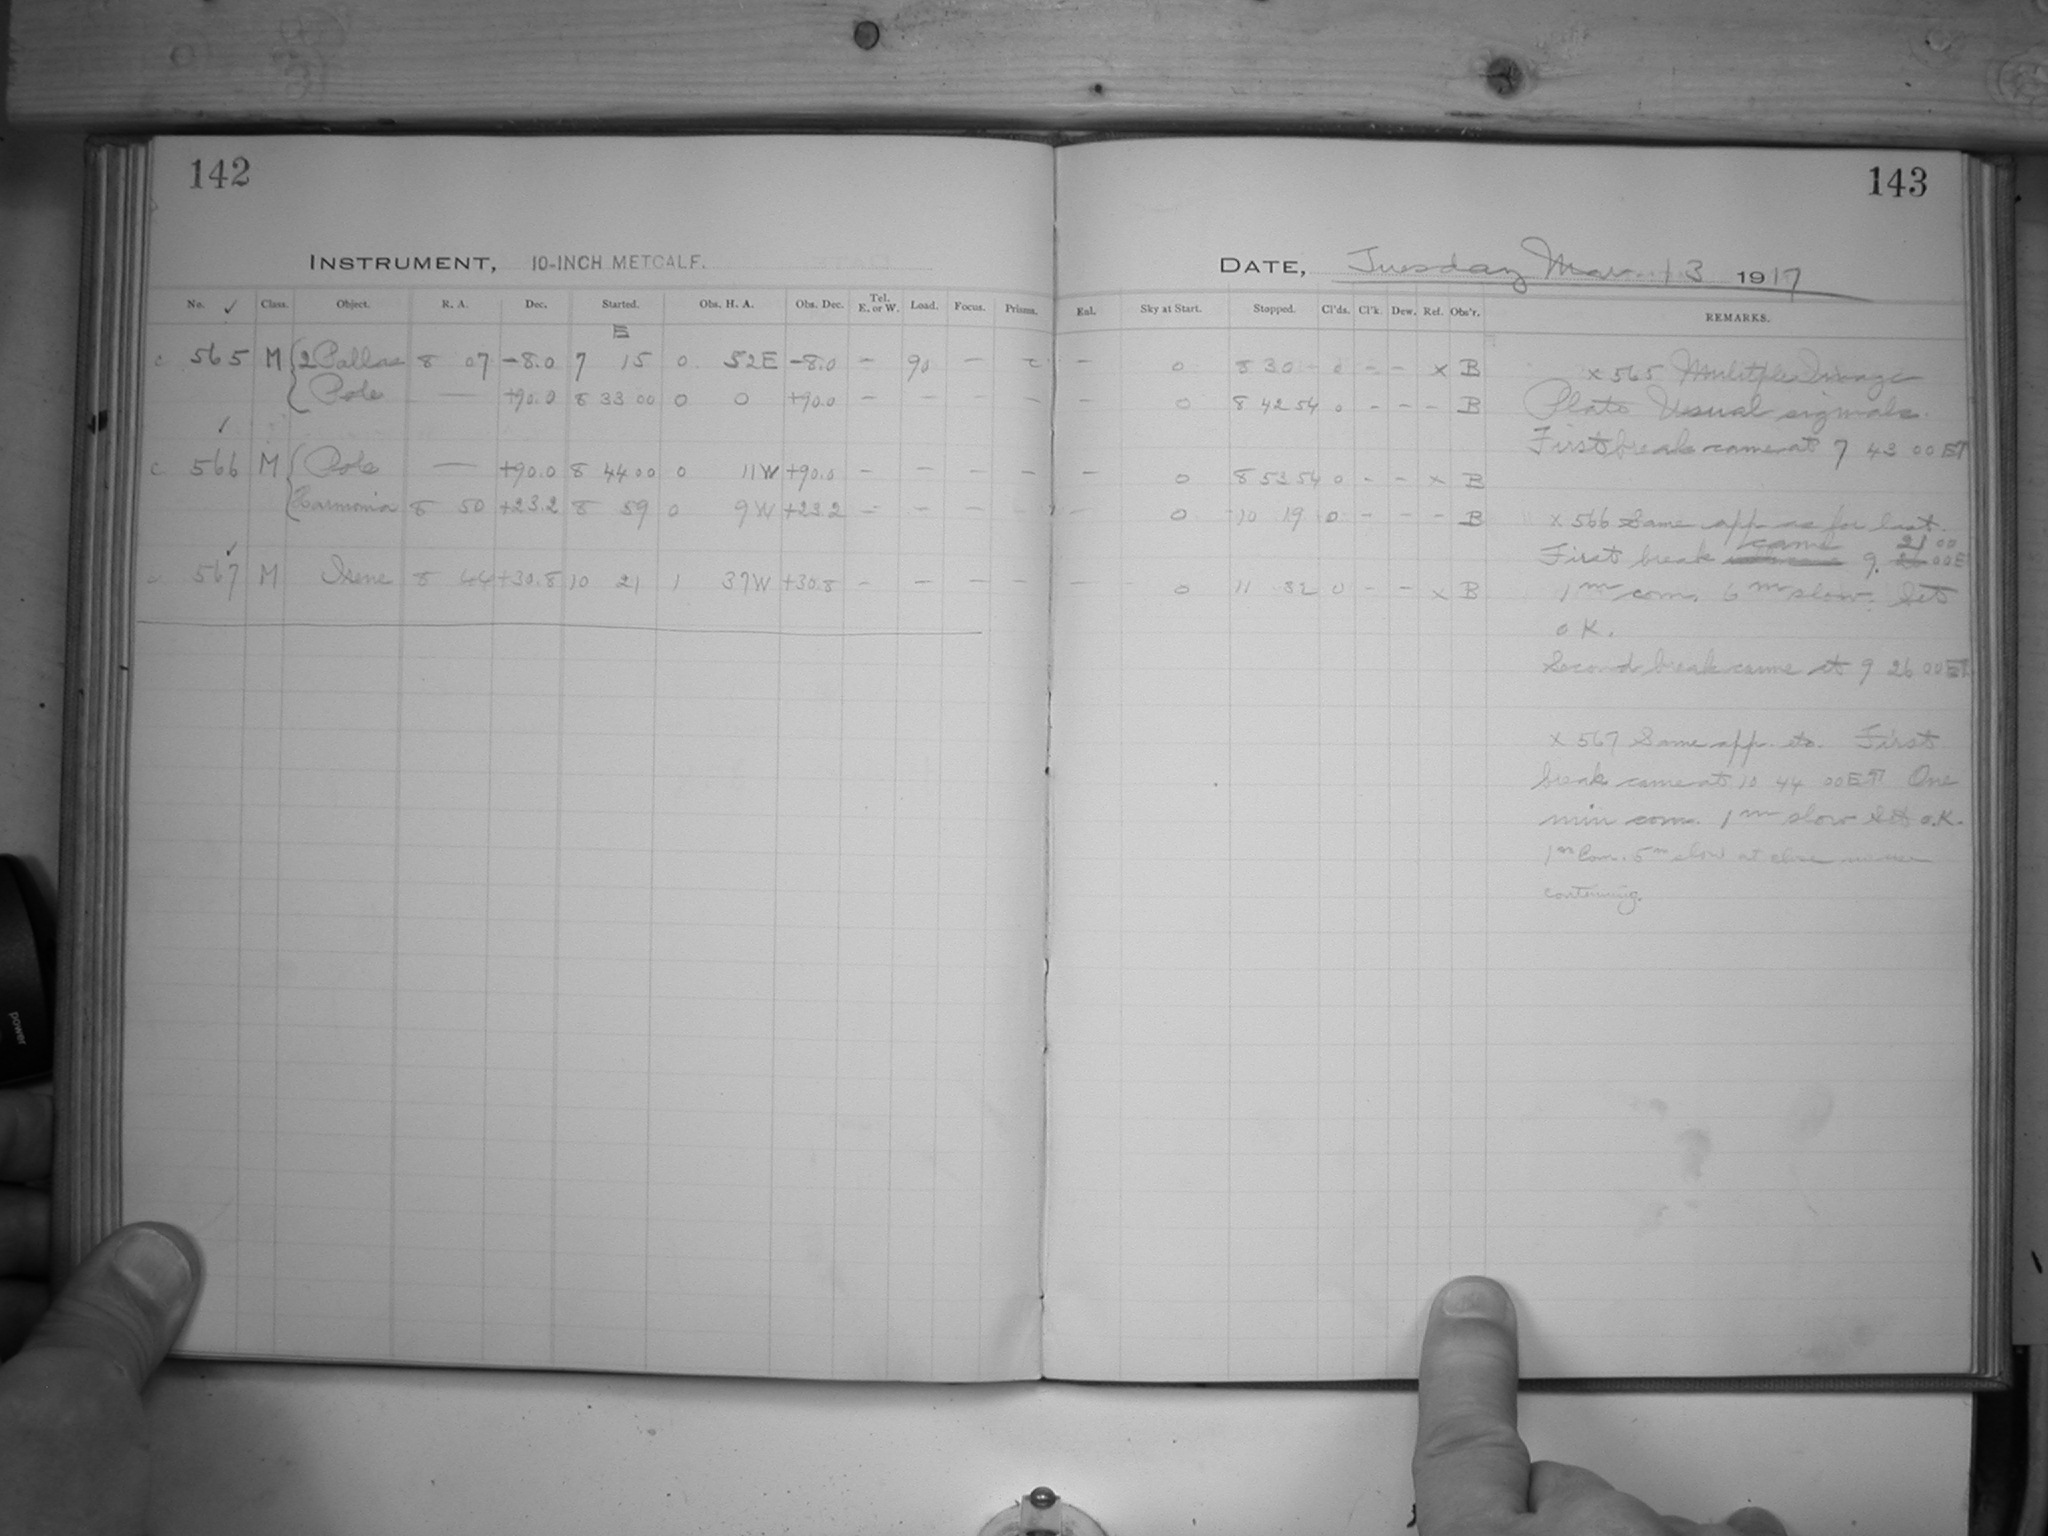 142
INSTRUMENT, 10-INCH METCALF.
No. ✓ Class. Object. R. A. Dec. Started. Obs. H. A. Obs. Dec. Tel. E. or W. Load. Focus. Prisms.
E
c 565 M 2 Pallas 8 07 -8.0 7 15 0 52E -8.0 - 90 - -
Pole — +90.0 8 33 00 0 0 +90.0 - - - -
✓
c 566 M Pole — +90.0 8 44 00 0 11W +90.0 - - - -
Harmonia 8 50 +23.2 8 59 0 9W +23.2 - - - -
✓
567 M Irene 8 44 +30.8 10 21 1 37W +30.8 - - - -
143
DATE, Tuesday Mar 13 1917
Eal. Sky at Start. Stopped. Cl'ds. Cl'k. Dew. Ref. Obs'r. REMARKS.
- 0 8 30 - 0 - - x B
- 0 8 42 54 0 - - - B
- 0 8 53 54 0 - - x B
- 0 10 19 0 - - - B
- 0 11 32 0 - - x B
x 565 Mulitple Image
Plate Usual signals.
First break came at 7 43 00 EST
x 566 Same app as for last.
came 21 00
First break 9 26 00 E
1m com. 6m slow. Set
O K.
Second break came at 9 26 00 EST
x 567 Same app. etc. First
break came at 10 44 00 EST One
min com. 1m slow Set O.K.
1m Com. 5m slow at close
contening.
power